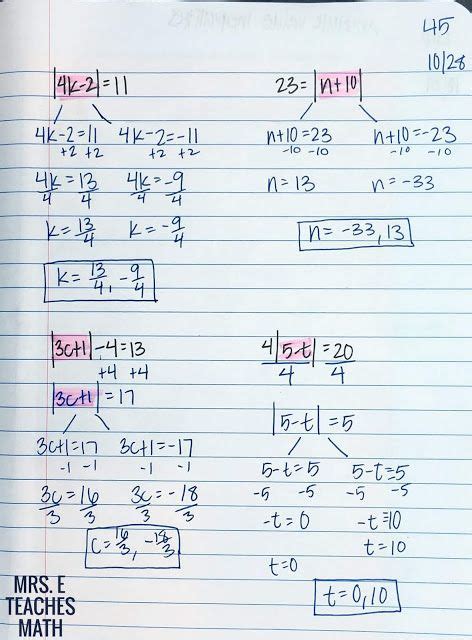 45
10/28
|4k-2|=11
4k-2=11 4k-2=-11
+2 +2 +2 +2
4k/4=13/4 4k/4=-9/4
k=13/4 k=-9/4
k=13/4, -9/4
23=|n+10|
n+10=23 n+10=-23
-10 -10 -10 -10
n=13 n=-33
n=-33,13
|3c+1|-4=13
+4 +4
|3c+1|=17
3c+1=17 3c+1=-17
-1 -1 -1 -1
3c/3=16/3 3c/3=-18/3
c=16/3, -18/3
4|5-t|/4=20/4
|5-t|=5
5-t=5 5-t=-5
-5 -5 -5 -5
-t=0 -t=-10
t=10
t=0
t=0,10
MRS. E
TEACHES
MATH